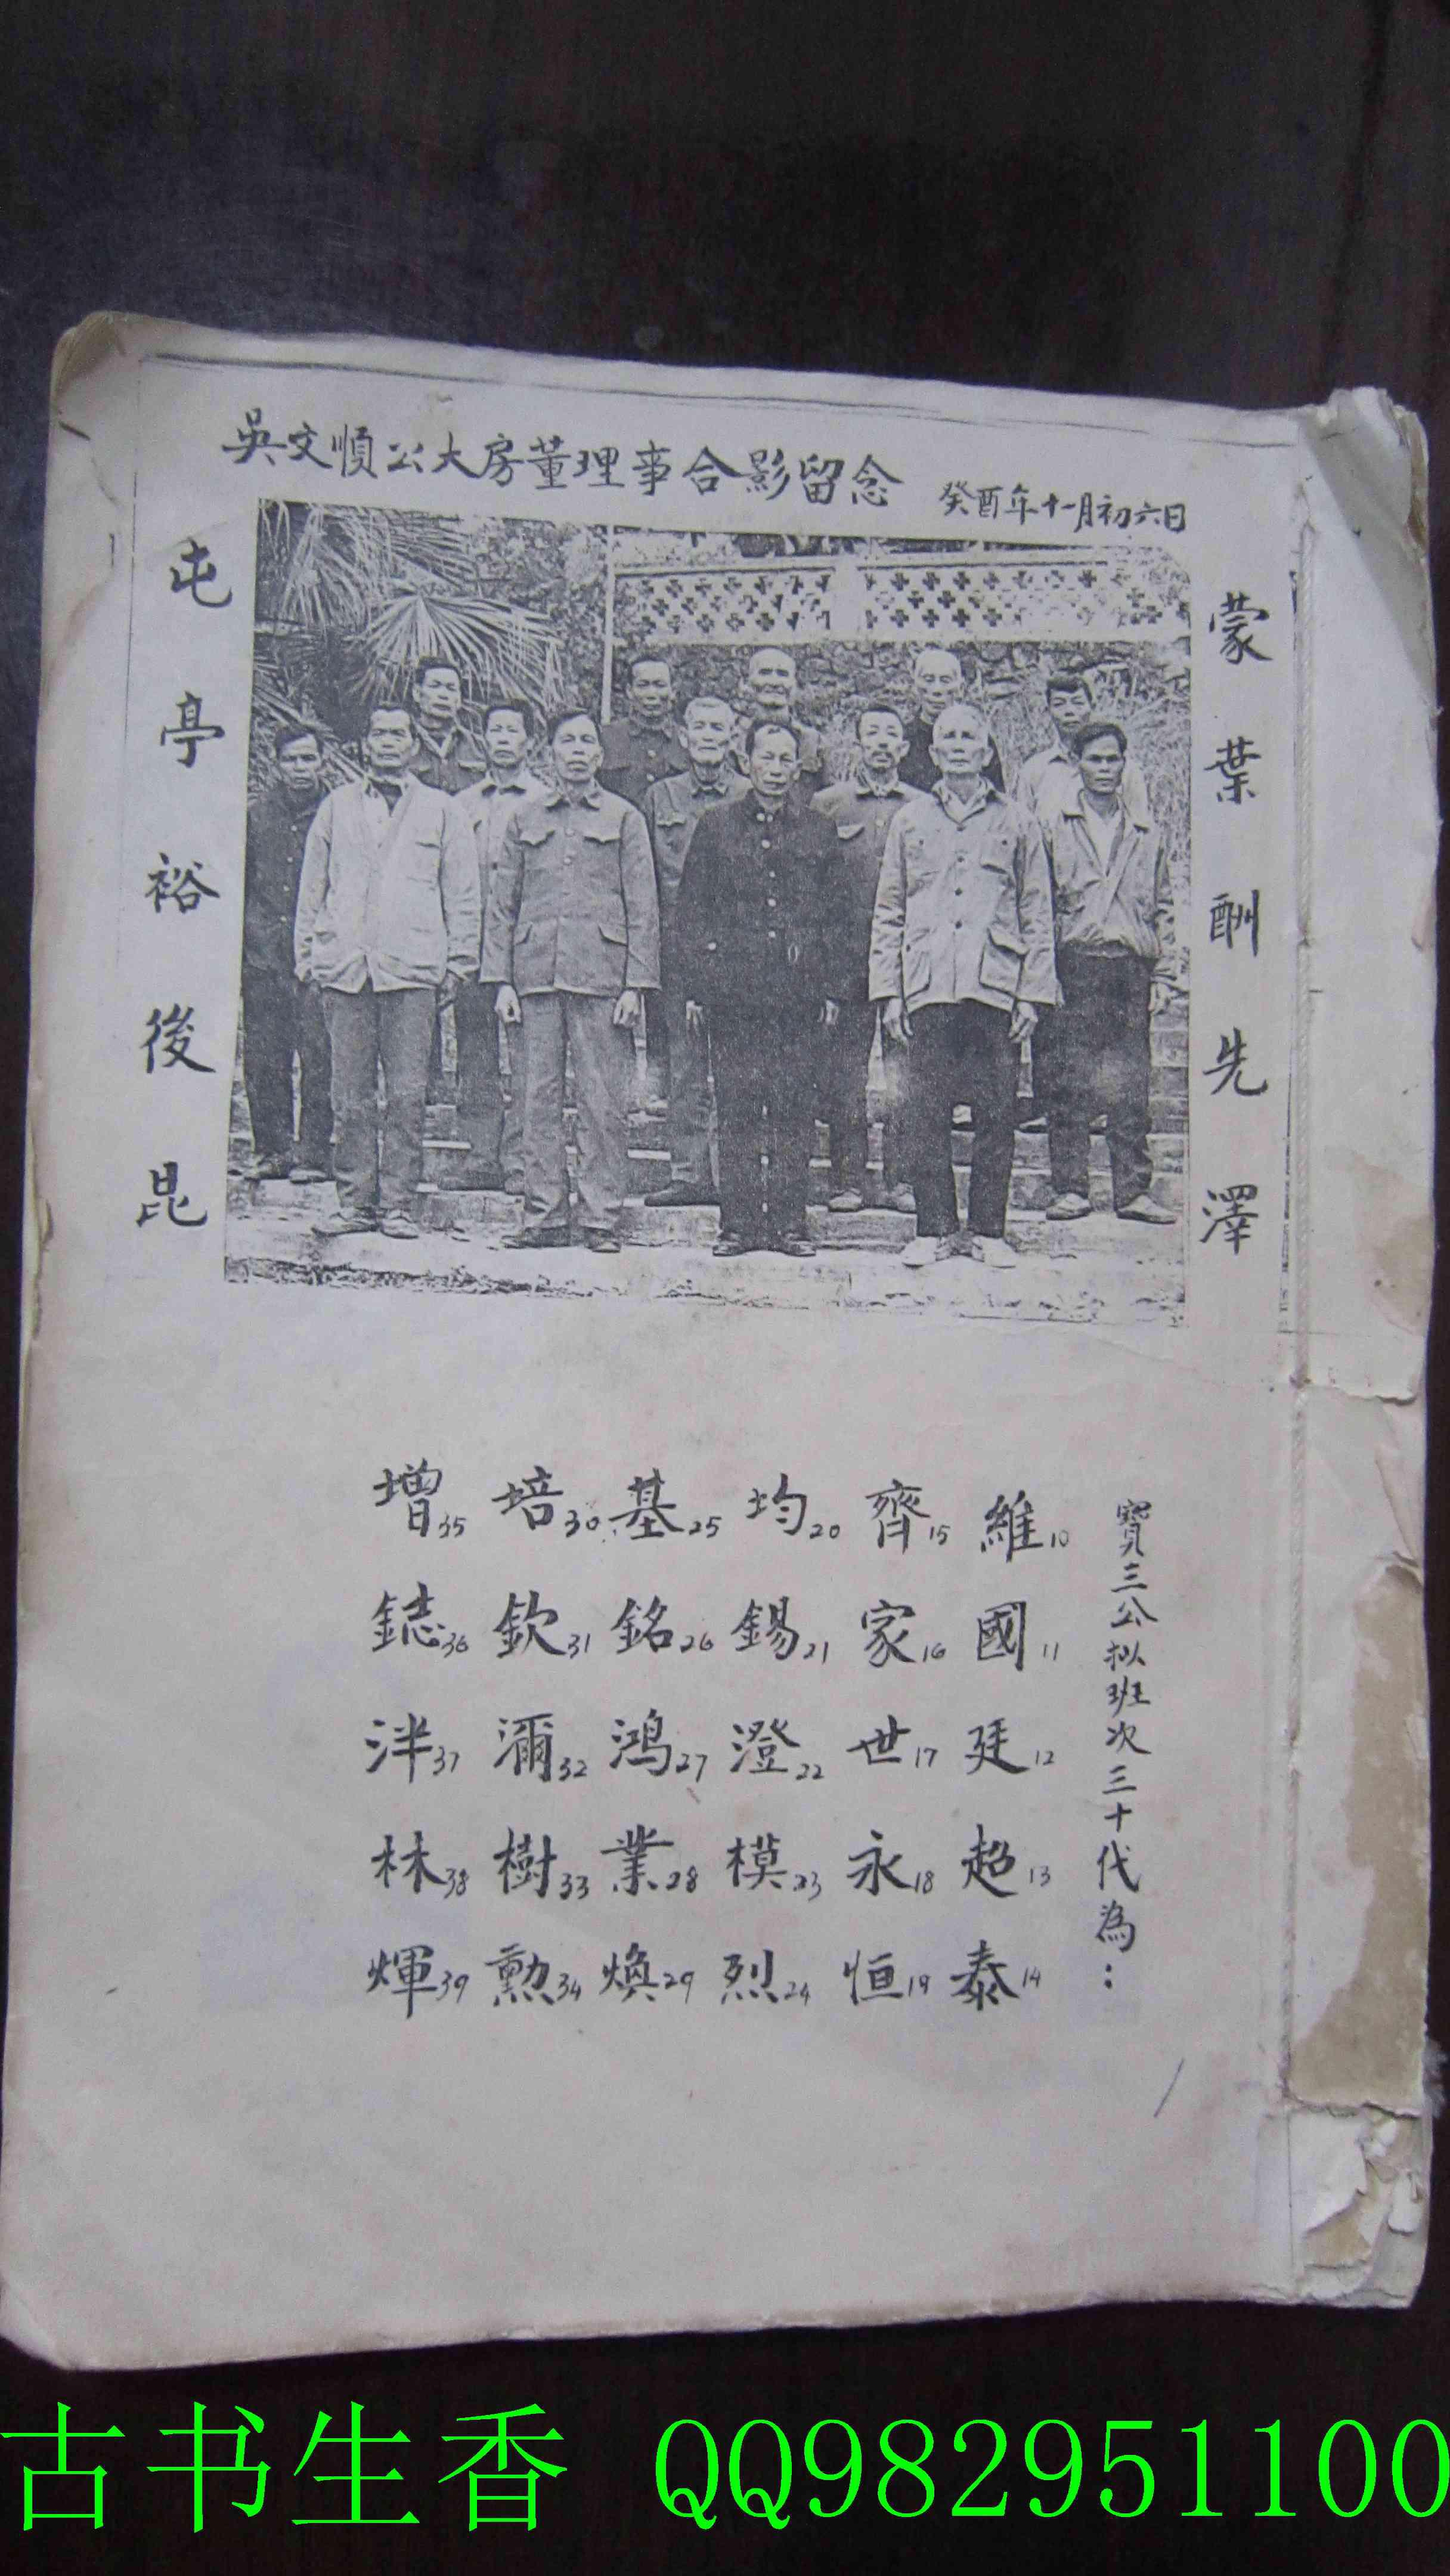 吳文順公大房董理事合影留念
癸酉年十一月初六日
蒙葉酬先澤
屯亭裕後昆
寶三公拟班次三十代為：
維10 國11 廷12 超13 泰14
齊15 家16 世17 永18 恒19
均20 錫21 澄22 模23 烈24
基25 銘26 鴻27 業28 煥29
培30 欽31 瀰32 樹33 勲34
增35 鋕36 泮37 林38 輝39
古书生香 QQ982951100